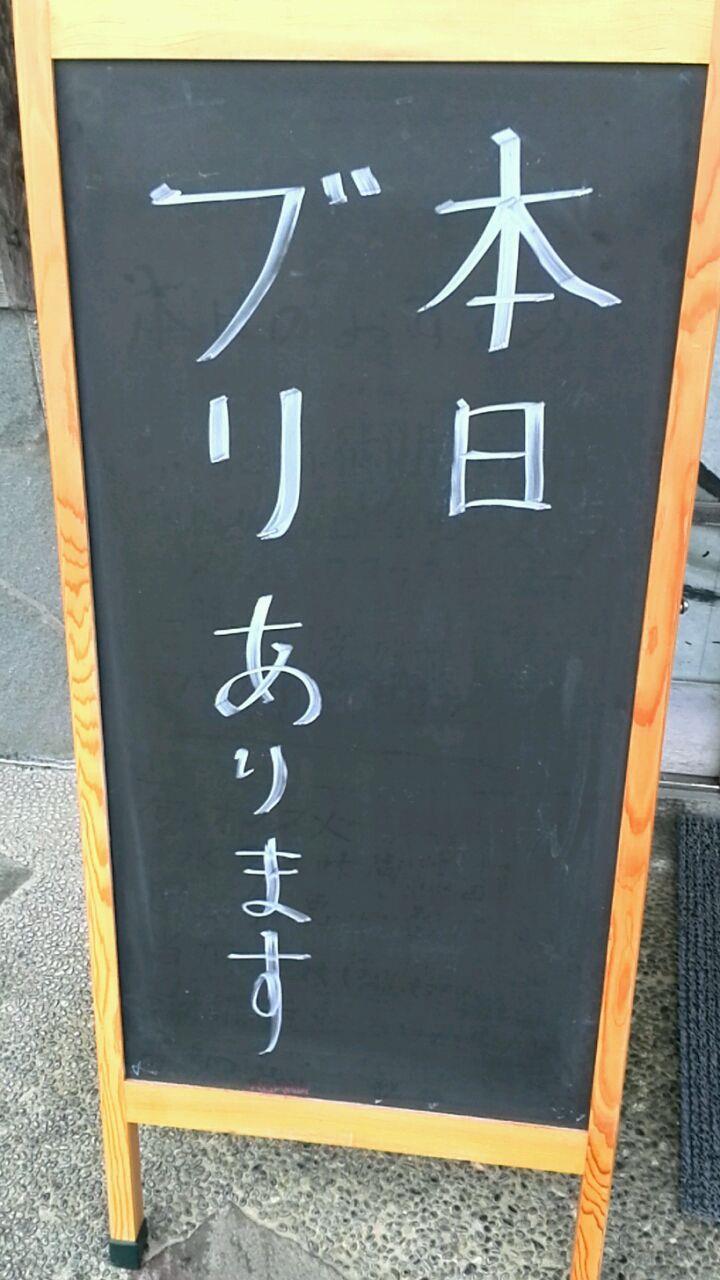 本日
ブリあります